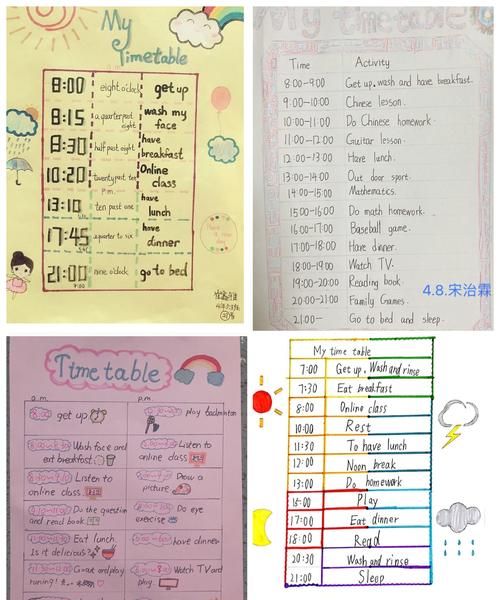 My
Timetable
8:00 eight o'clock get up
8:15 a quarter past eight wash my face
8:30 half past eight have breakfast
10:20 twenty past ten Online class
p.m.
13:10 ten past one have lunch
17:45 a quarter to six have dinner
21:00 nine o'clock go to bed
9:00
Have a nice day
My timetable
Time Activity
8:00-9:00 Get up. wash and have breakfast.
9:00-10:00 Chinese lesson.
10:00-11:00 Do Chinese homework.
11:00-12:00 Guitar lesson.
12:00-13:00 Have lunch.
13:00-14:00 Out door sport.
14:00-15:00 Mathematics.
15:00-16:00 Do math homework.
16:00-17:00 Baseball game.
17:00-18:00 Have dinner.
18:00-19:00 Watch TV.
19:00-20:00 Reading book.
20:00-21:00 Family Games.
21:00- Go to bed and sleep.
4.8.宋治霖
Time table
a.m. p.m.
get up play badminton
Wash face and eat breakfast Listen to online class
Listen to online class Draw a picture
Do the question and read book Do eye exercise
Eat lunch. Is it delicious? have dinner
Go out and play runing! Watch TV and play
My time table
7:00 Get up. Wash and rinse
7:30 Eat breakfast
8:00 Online class
10:00 Rest
11:30 To have lunch
12:00 Noon break
13:00 Do homework
15:00 Play
17:00 Eat dinner
18:00 Read
20:30 Wash and rinse
21:00 Sleep